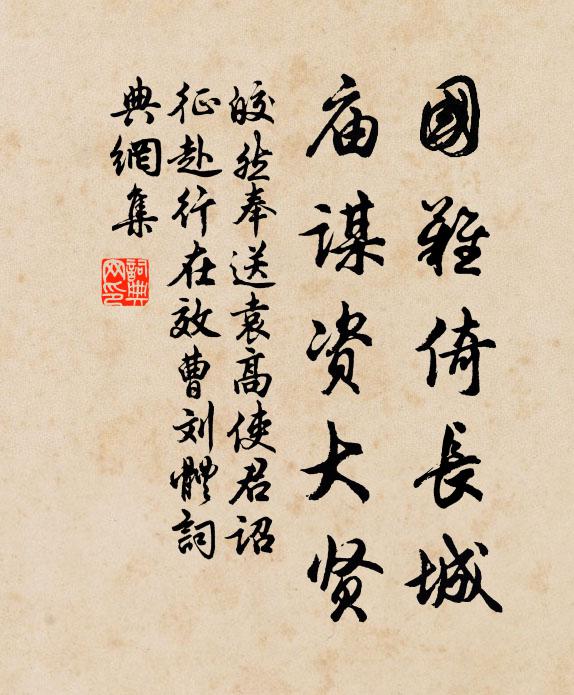 國難倚長城
庙謀资大贤
皎然奉送袁高使君詔
征赴行在效曹刘體詞
典網集
詞典網印